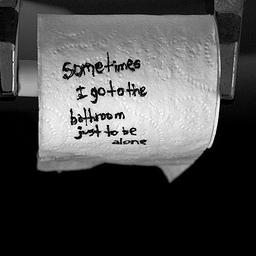 sometimes
I go to the
bathroom
just to be
alone